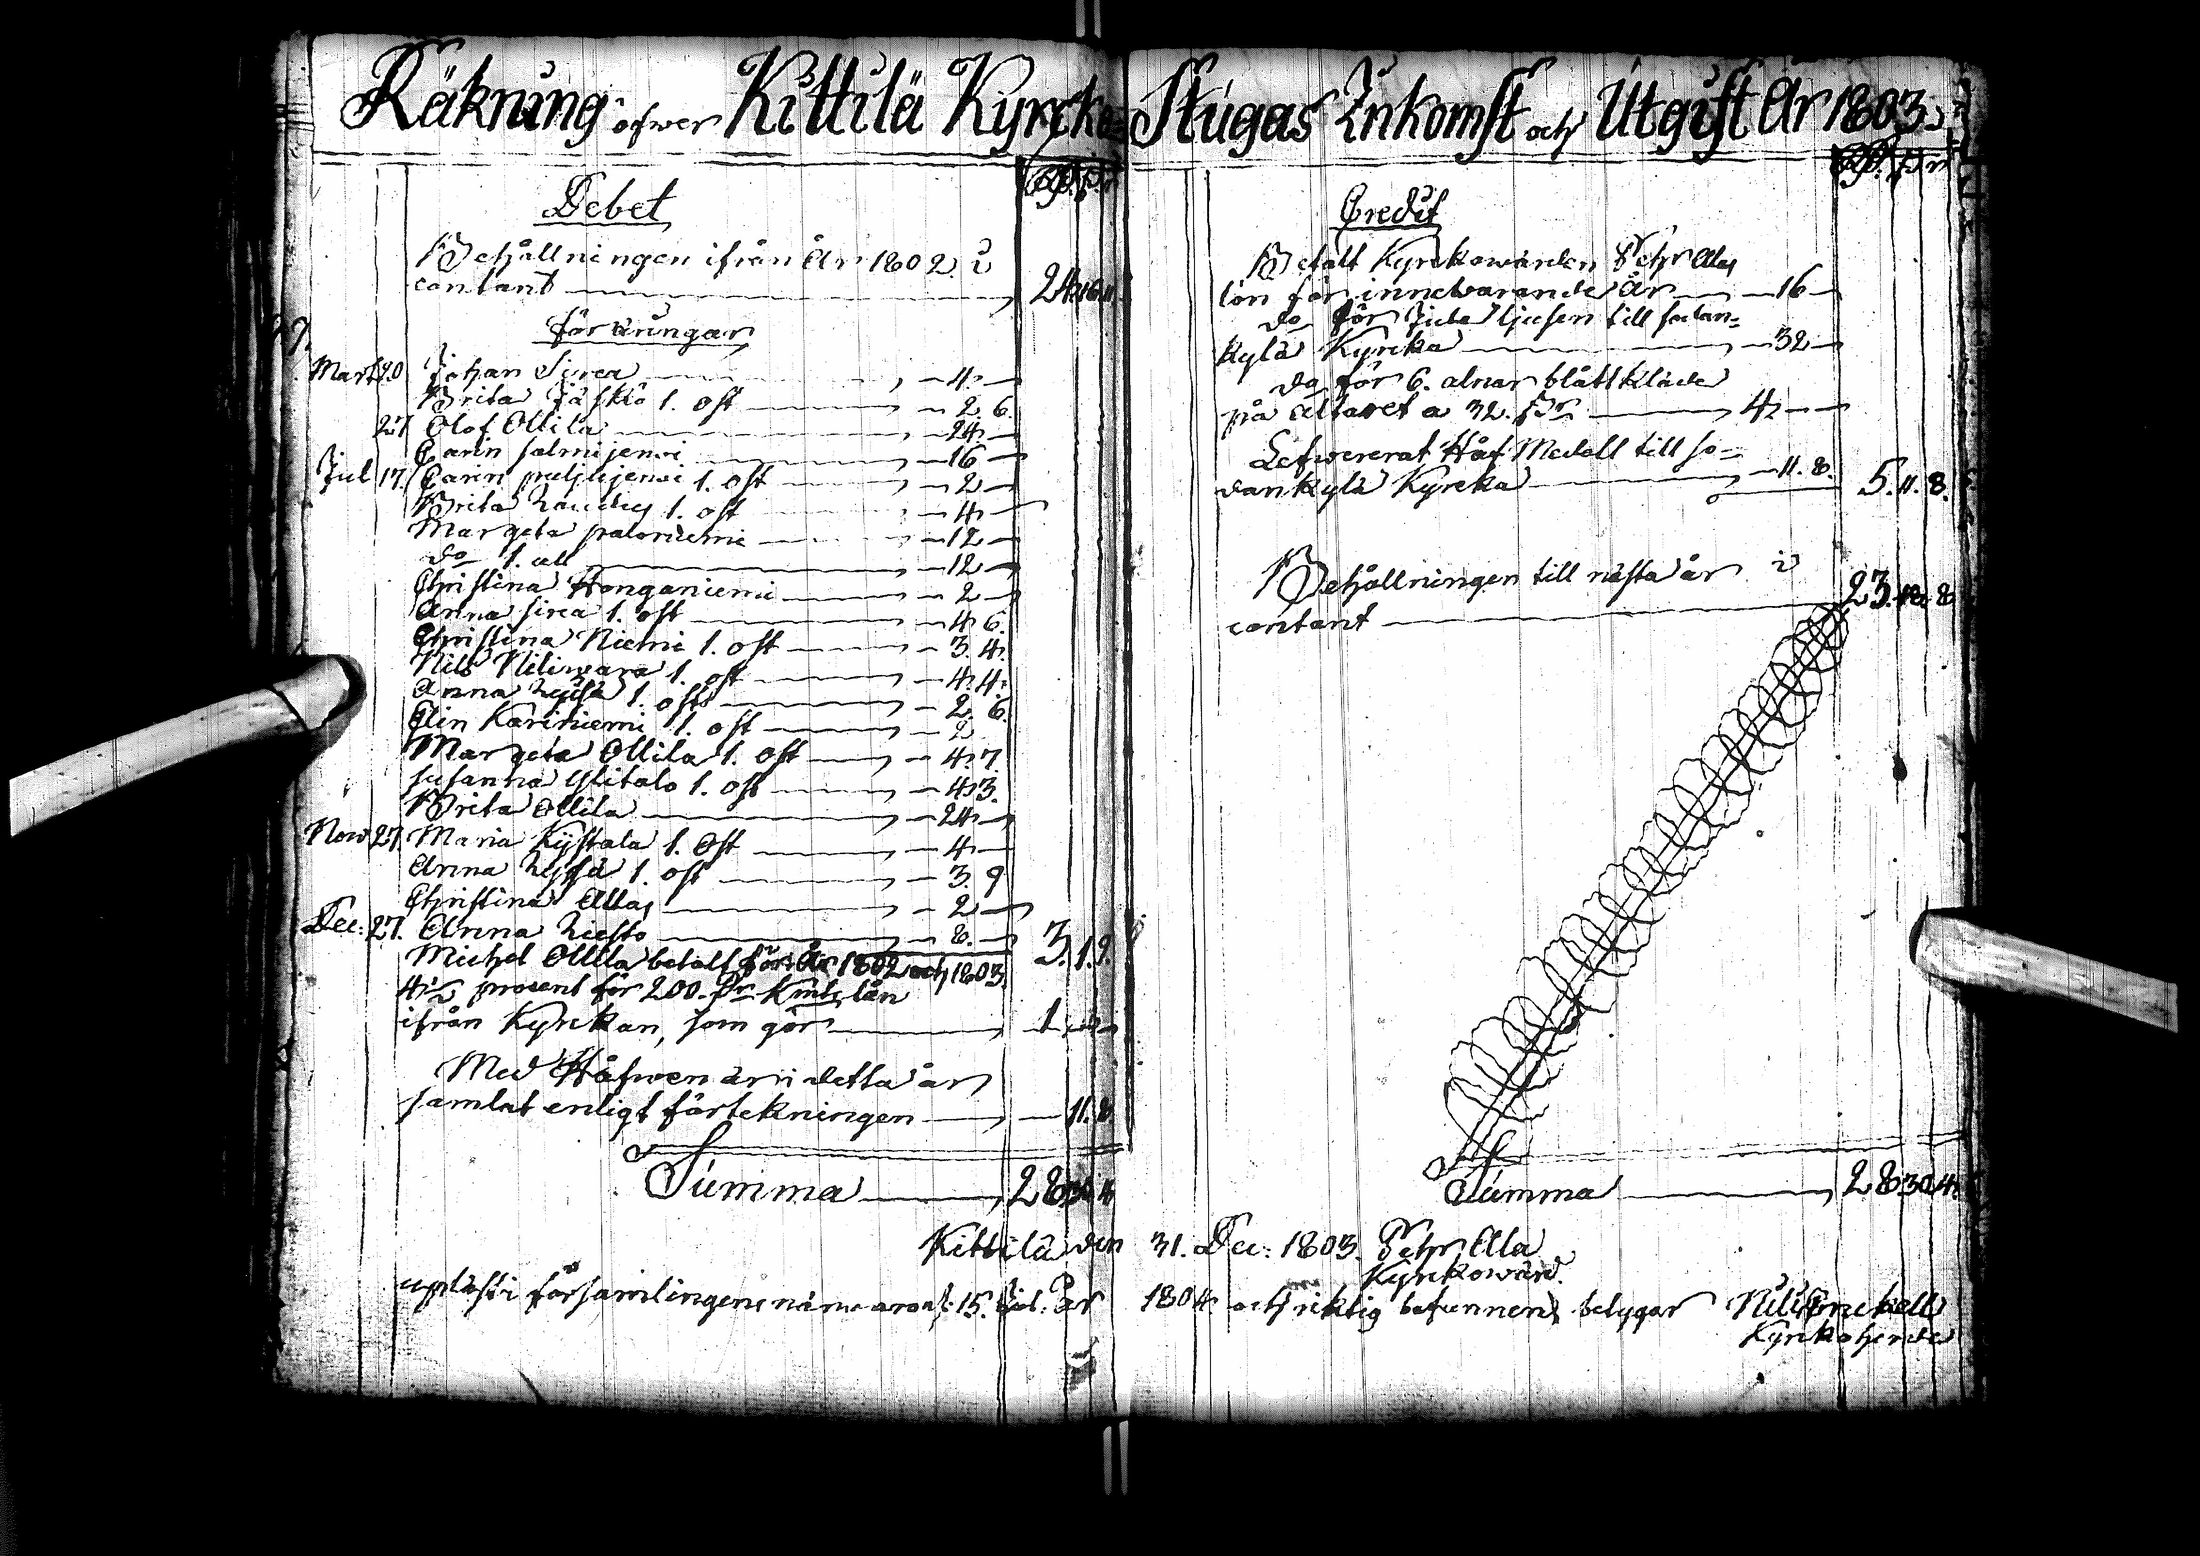 Räkning öfwer Kittilä Kyrcko= Stugas Inkomst och Utgift År 1803.
Debet
Behållningen ifrån År 1802 i
contant 24. 16. 11.
förärungar
Mart 20 Johan Sirca 4.
Brita Jäskö 1. ost 2. 6.
27 Olof Ollila 24.
Carin salmijerwi 16
Jul 17. Carin puljujerwi 1. ost 2
Brita 1. ost 4
Margeta paloniemi 12
do 1. all 12
Christina Honganiemi 2
Anna sirca 1. ost 4. 6.
Christina Niemi 1. ost 3. 4.
Nils Niliwara 1. ost 4. 4.
Anna 1. ost 2. 6.
Elin Kariniemi 1. ost 2
Margeta Ollila 1. ost 4. 7
susanna Ylitalo 1. ost 4. 3.
Brita Ollila 24
Now 27. Maria Kÿstala 1. Ost 4
Anna 1. ost 3. 9
Christina Allas 2
Dec: 27. Anna Liesto 8. 3. 1. 9.
Michel Ollila betalt för År 1802 och 1803.
procent för 200. lån
ifrån Kyrckan, som gör 1
Med Håfwen är i detta år
samlat enligt förtekningen 11. 8.
Summa 28. 30. 4
Credit
Betalt Kyrckowärden Pehr Alla
lön för innewarande År 16
do för Jula ljusen till sodan=
kylä Kyrcka 32
do för 6. alnar blått kläde
på altaret a 32. 4
Lefwererat Håf Medell till so=
dankylä Kyrcka 11. 8. 5. 11. 8.
Behållningen till nästa år i
contant 23. 18. 8
Summa 28. 30. 4.
Kittilä den 31. Dec: 1803. Pehr Alla
Kyrckowärd.
upläst i församlingens närwaro d. 15. År 1804 och riktig befunnen, betygar Nils
Kyrckoherde